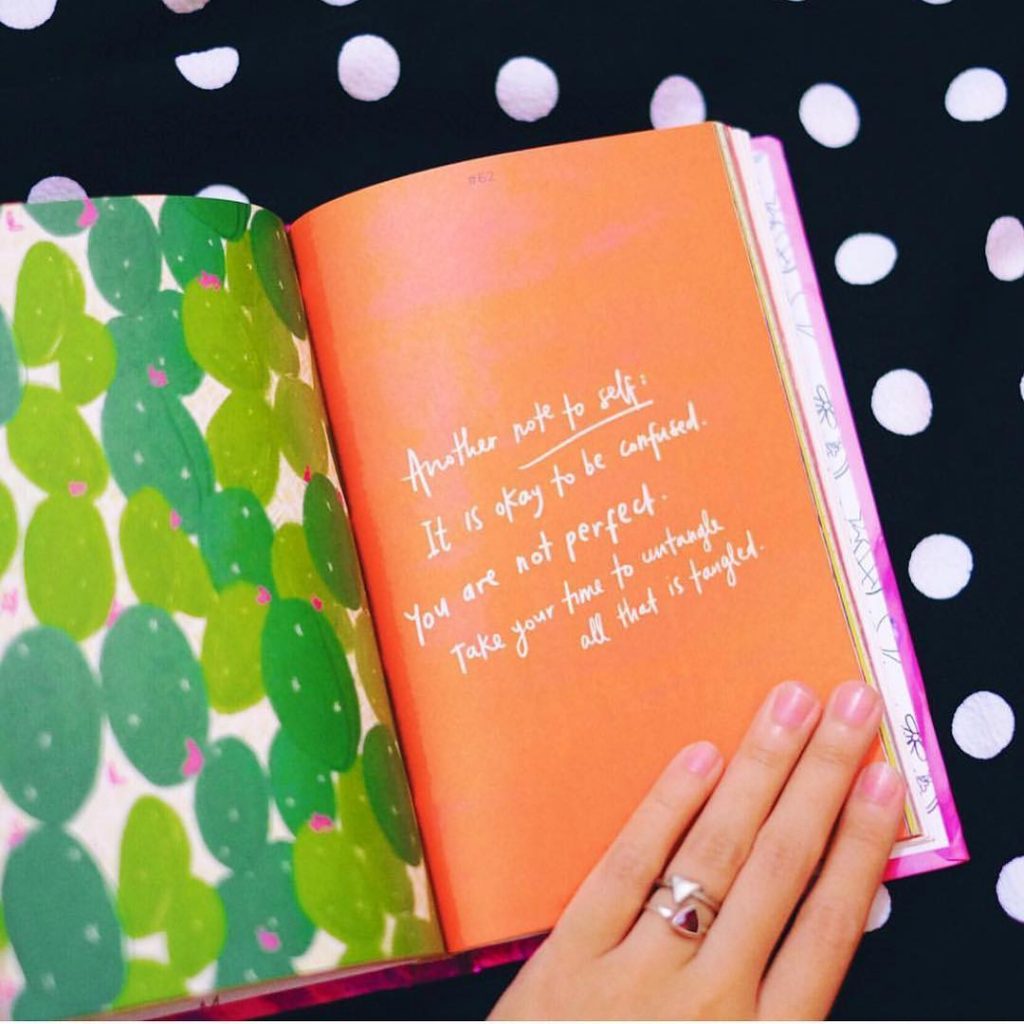 #62
Another note to self:
It is okay to be confused.
You are not perfect.
Take your time to untangle
all that is tangled.